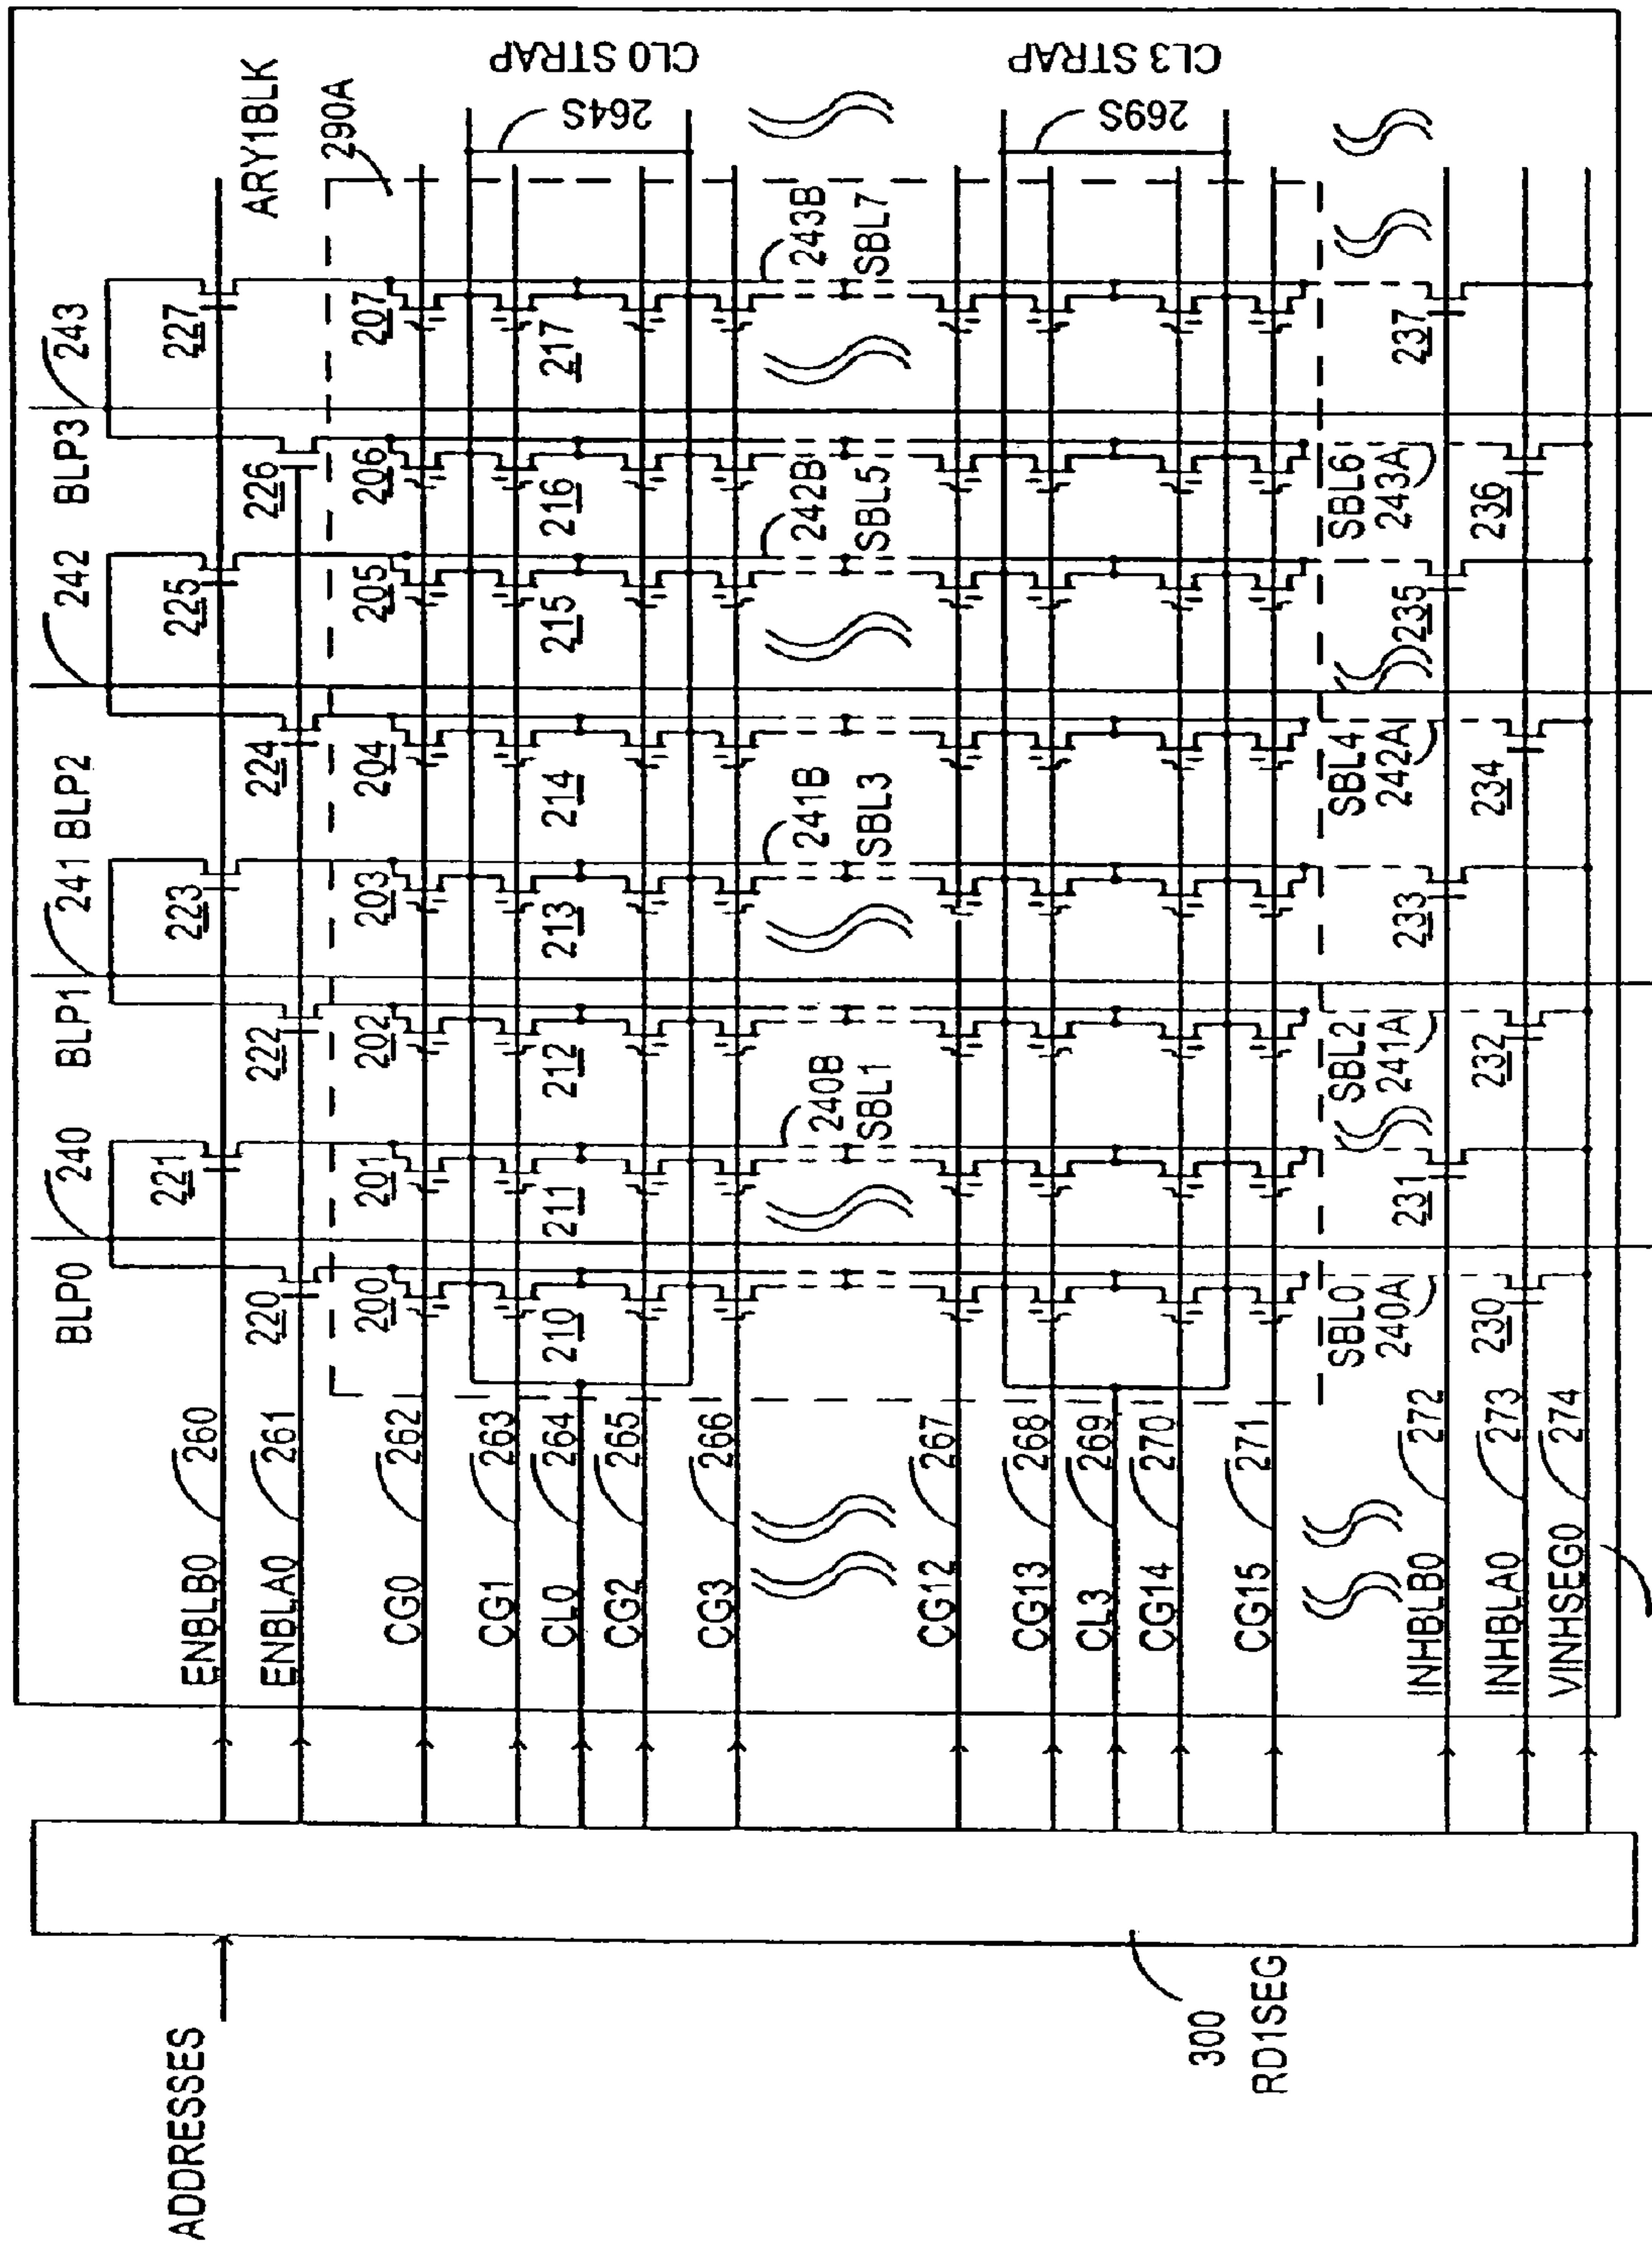 ADDRESSES
300
RD1SEG
ENBLB0 260
ENBLA0 261
CG0 262
CG1 263
CL0 264
CG2 265
CG3 266
CG12 267
CG13 268
CL3 269
CG14 270
CG15 271
INHBLB0 272
INHBLA0 273
VINHSEG0 274
BLP0 240 BLP1 241 BLP2 242 BLP3 243
ARY1BLK
290A
221 223 225 227
220 222 224 226
200 201 202 203 204 205 206 207
210 211 212 213 214 215 216 217
CL0 STRAP
264S
240B
SBL1
241B
SBL3
242B
SBL5
243B
SBL7
CL3 STRAP
269S
SBL0
240A
SBL2
241A
SBL4
242A
SBL6
243A
231 233 235 237
230 232 234 236